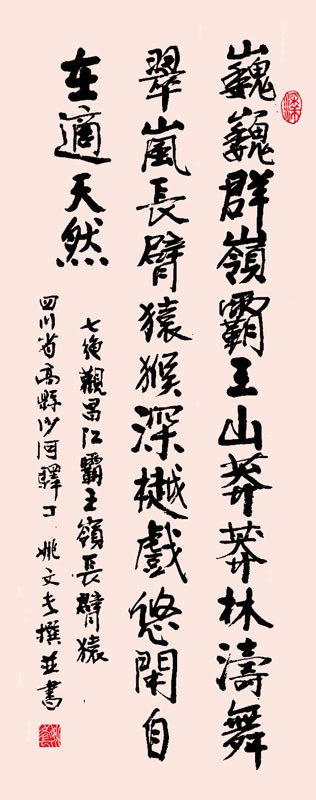 巍巍群嶺霸王山莽莽林濤舞
翠嵐長臂猿猴深樾戲悠閑自
在適天然
七絕觀昌江霸王嶺長臂猿
四川省高縣沙河驛 姚文长撰並書